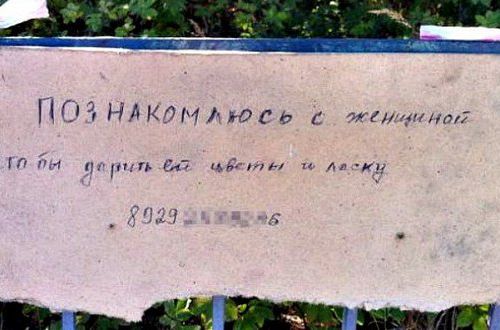 ПОЗНАКОМЛЮСЬ с женщиной
тобы дарить ей цветы и ласку
8929 6